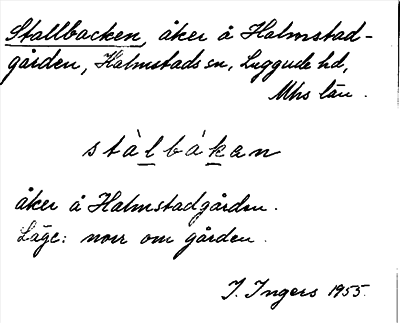 Stallbacken, åker å Halmstad-
gården, Halmstads sn, Luggude hd,
Mhs län.
stàlbákan
åker å Halmstadgården.
Läge: norr om gården.
I. Ingers 1955.